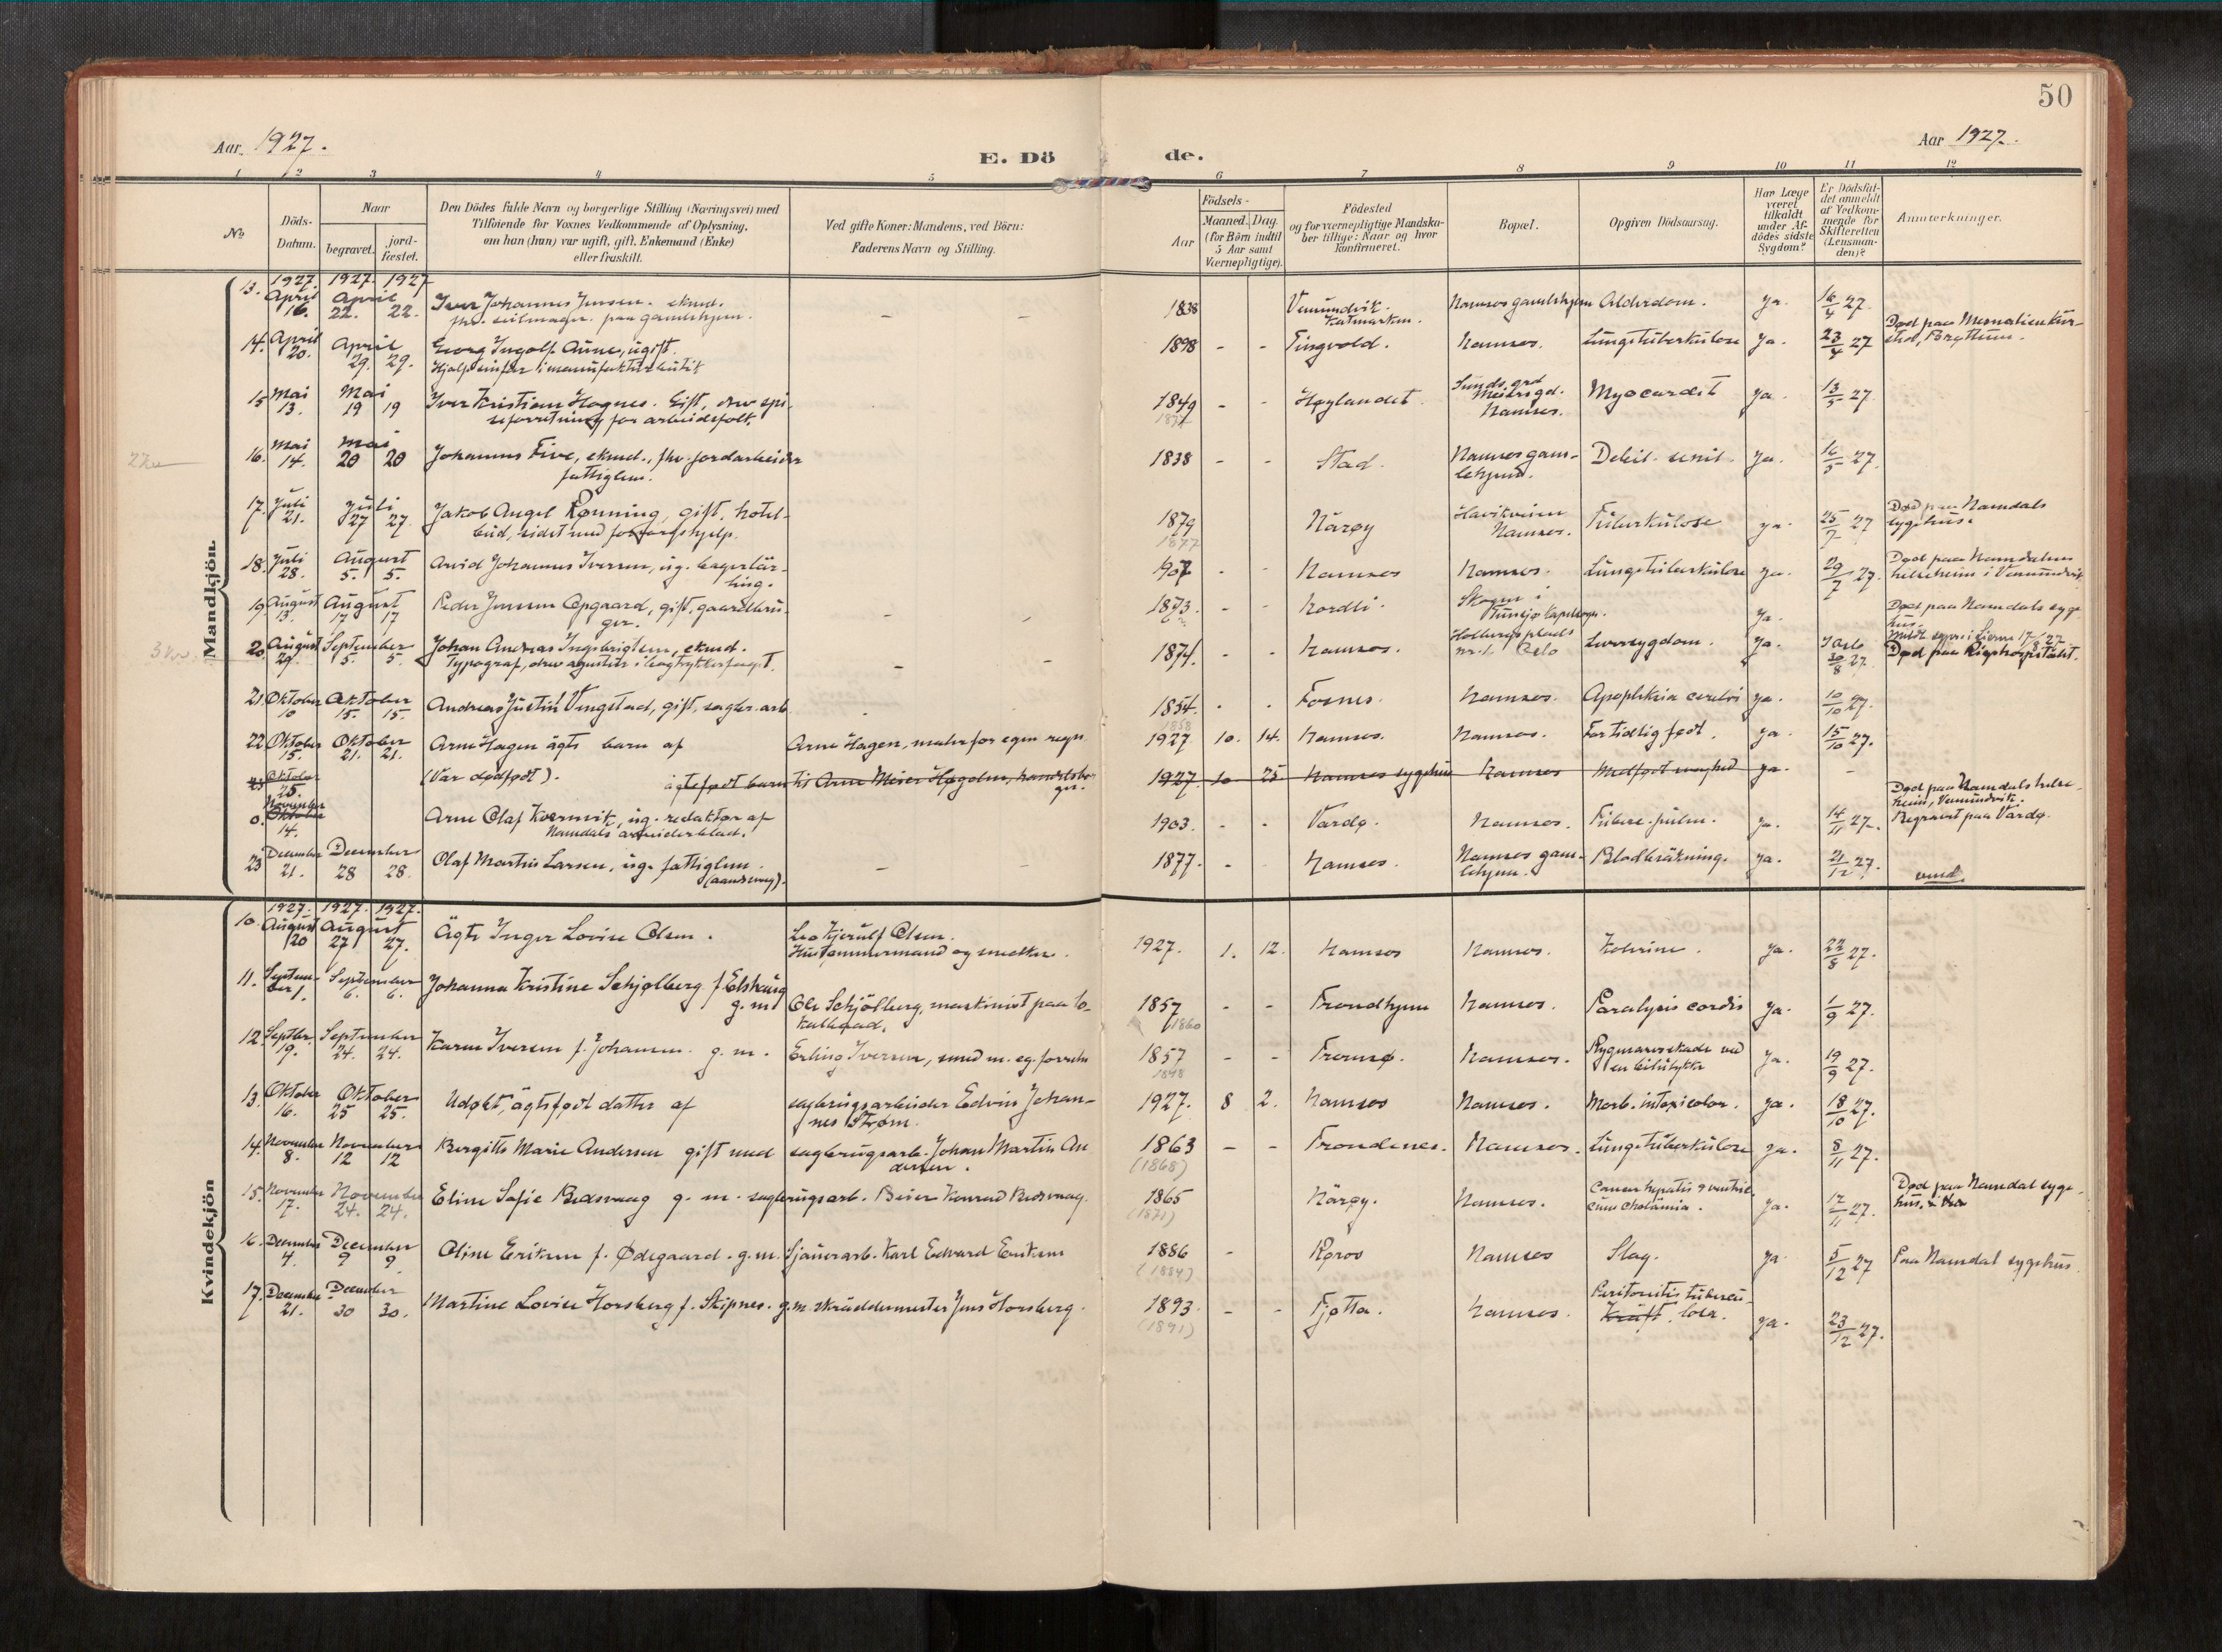 50
Aar 1927.
Aar 1927.
E. Dö
de.
1 2 3 4 5 6 7 8 9 10 11 12
No.
Döds-
Datum.
Naar
begravet.
jord-
fæstet.
Den Dödes fulde Navn og borgerlige Stilling (Næringsvei) med
Tilföiende for Voxnes Vedkommende af Oplysning,
om han (hun) var ugift, gift, Enkemand (Enke)
eller fraskilt.
Ved gifte Koner: Mandens, ved Börn:
Faderens Navn og Stilling.
Födsels-
Aar
Maaned. Dag.
(for Börn indtil
5 Aar samt
Værnepligtige).
Födested
og for værnepligtige Mandska-
ber tillige: Naar og hvor
konfirmeret.
Bopæl.
Opgiven Dödsaarsag.
Har Læge
været
tilkaldt
under Af-
dödes sidste
Sygdom?
Er Dödsfal-
det anmeldt
af Vedkom-
mende for
Skifteretten
(Lensman-
den)?
Anmærkninger.
Mandkjön.
1927. 1927. 1927
13. April 16. April 22. 22. Iver Johannes Jensen. ekmd. – – 1838 Vemundvik. Namsos gamlehjem Alderdom. Ja. 16/4 27.
fhv. seilmager. paa gamlehjem. Katmarken.
14. April 20. April 29. 29. Georg Ingolf Aune, ugift. 1898 - - Tingvold. Namsos. Lungetuberkulose Ja. 23/4 27 Død paa Mesnalien kur-
Hjalp sin far i manufakturbutik sted, Brøttum.
15 Mai 13. Mai 19 19 Iver Kristian Hognes. Gift, drev spi- 1849 - - Høylandet. Namsos. Myocardit Ja. 13/5 27.
seforretning for arbeidsfolk.
16. Mai 14. Mai 20 20 Johannes Five, ekmd., fhv. jordarbeider 1838 - - Stad. Namsos gam- Debil. senil. Ja. 16/5 27.
fattiglem. lehjem.
17. Juli 21. Juli 27 27. Jakob Angel Rønning, gift, hotel- 1879 Närøy Havikveien Tuberkulose ja. 25/7 27 Død paa Namdals
bud, sidst med forsorgshjelp. 1877 Namsos. sygehus.
18. Juli 28. August 5. 5. Arvid Johannes Iversen, ug. bagerlär- 907 - - Namsos Namsos. Lungetuberkulose ja. 29/7 27. Død paa Namdalens
ling. helseheim i Vemundvik
19 August 13. August 17 17 Peder Jensen Opgaard, gift, gaardbru- 1873. - - Nordli. Skogen i Ja. Død paa Namdals syge
ger. Tunsjø Kapelsogn. hus.
Meldt sogne i Lierne 17/8 27
20. August 29. September 5. 5. Johan Andreas Ingebrigtsen, ekmd. – – 1874. - - Namsos. Holbergs plads Leversygdom. Ja. I Oslo 30/8 27. Død paa Rigshospitalet.
Typograf, drev agentur i bogtrykkerfaget. nr. 1. Oslo
21. Oktober 10 Oktober 15. 15. Andreas Justin Vengstad, gift, sagbr.arb. 1854. Fosnes. Namsos. Apoplexia cerebri ja. 10/10 27.
1858
22. Oktober 15. Oktober 21. 21. Arne Hagen ägte barn af Arne Hagen, maler for egen regn. 1927 10. 14. Namsos. Namsos. For tidlig født. ja 15/10 27.
23 Oktober 25. (Var dødfødt). ägtefødt barn til Arne Meier Høyholm, handelsbe- 1927. 10 25 Namsos sygehus Namsos Medfødt svaghed ja. –
0. November Oktober 14. Arne Olaf Koernvik, ug. redaktør af 1903. - - Vardø. Namsos. Tuberc. pulm. ja. 14/11 27. Død paa Namdals helse-
Namdals arbeiderblad. heim, Vemundvik.
Begravet paa Vardø.
23 December 21. December 28 28. Olaf Martin Larsen, ug. fattiglem. – 1877. - - Namsos. Namsos gam- Blodbrækning. ja. 21/12 27.
(aandssvag). lehjem.
Kvindekjön
1927. 1927. 1927.
10. August 20 August 27 27. Ägte Inger Lovise Olsen. Leo Kjerulf Olsen. 1927. 1. 12. Namsos Namsos. Kolerine. ja. 22/8 27.
Hustømmermand og snekker.
11. September 1. September 6. 6. Johanna Kristine Schjølberg f. Elshaug 1857 - - Trondhjem Namsos. Paralysis cordis ja. 1/9 27.
g. m. Ole Schjölberg, maskinist paa lo- 1860
kalbaad.
12. Septbr. 19. September 24. 24. Karen Iversen f. Johansen. g. m. Erling Iversen, smed m. eg. forretn 1857 - - Tromsø. Namsos. Rygmarvsskade ved Ja. 19/9 27.
1848 en bilulykke
13. Oktober 16. Oktober 25 25. Udøbt, ägtefødt datter af sagbrugsarbeider Edvin Johan- 1927. 8 2. Namsos Namsos. Morb. intoxicolor. ja. 18/10 27.
nes Strøm.
14. November 8. November 12 12 Bergitte Marie Andersen gift med sagbrugsarb. Johan Martin An 1863 - - Trondenes. Namsos. Lungetuberkulose ja. 8/11 27.
dersen. (1868)
15. November 17. November 24. 24. Eline Sofie Bredsvaag g. m. sagbrugsarb. Beier Konrad Bredsvaag. 1865 Närøy. Namsos. Cancer hepatis & ventric. ja. 17/11 27. Død paa Namdal syge-
(1871) cum cholämia. hus.
16. December 4. December 9 9 Oline Eriksen f. Ødegaard. g. m. Sjauerarb. Karl Edvard Eriksen 1886 - Røros Namsos Slag. ja 5/12 27 Paa Namdal sygehus
(1884)
17. December 21. December 30 30. Martine Lovise Horsberg f. Skipnes. g. m. skräddermester Jens Horsberg. 1893. - - Tjøtta. Namsos. Peritonitis tubercu- ja. 23/12 27.
(1891) Kräft. losa.